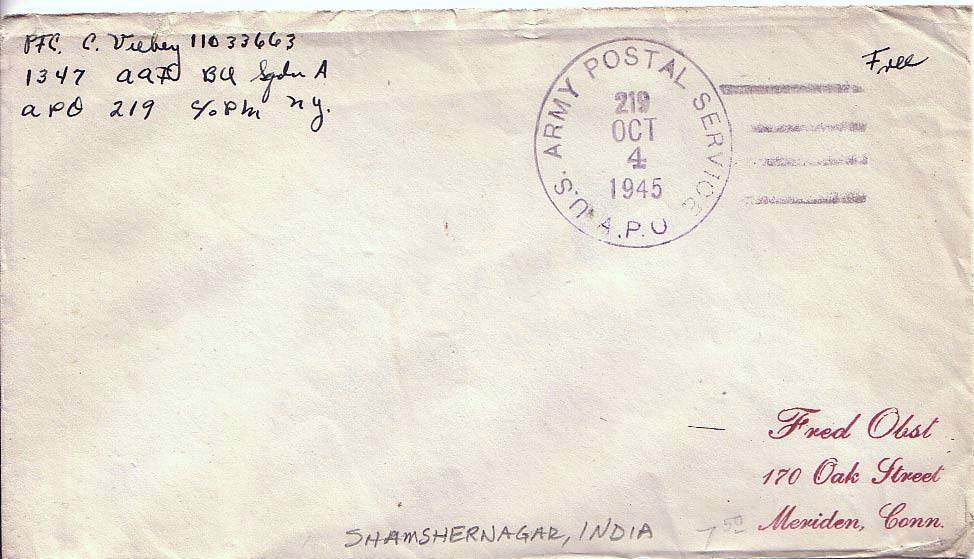 PFC. C. Vieby 11033663
1347 AAF BU Sqdn A
APO 219 c/o PM N.Y.
Free
U.S. ARMY POSTAL SERVICE
219
OCT
4
1945
A.P.O
Fred Obst
170 Oak Street
Meriden, Conn.
SHAMSHERNAGAR, INDIA
7 50